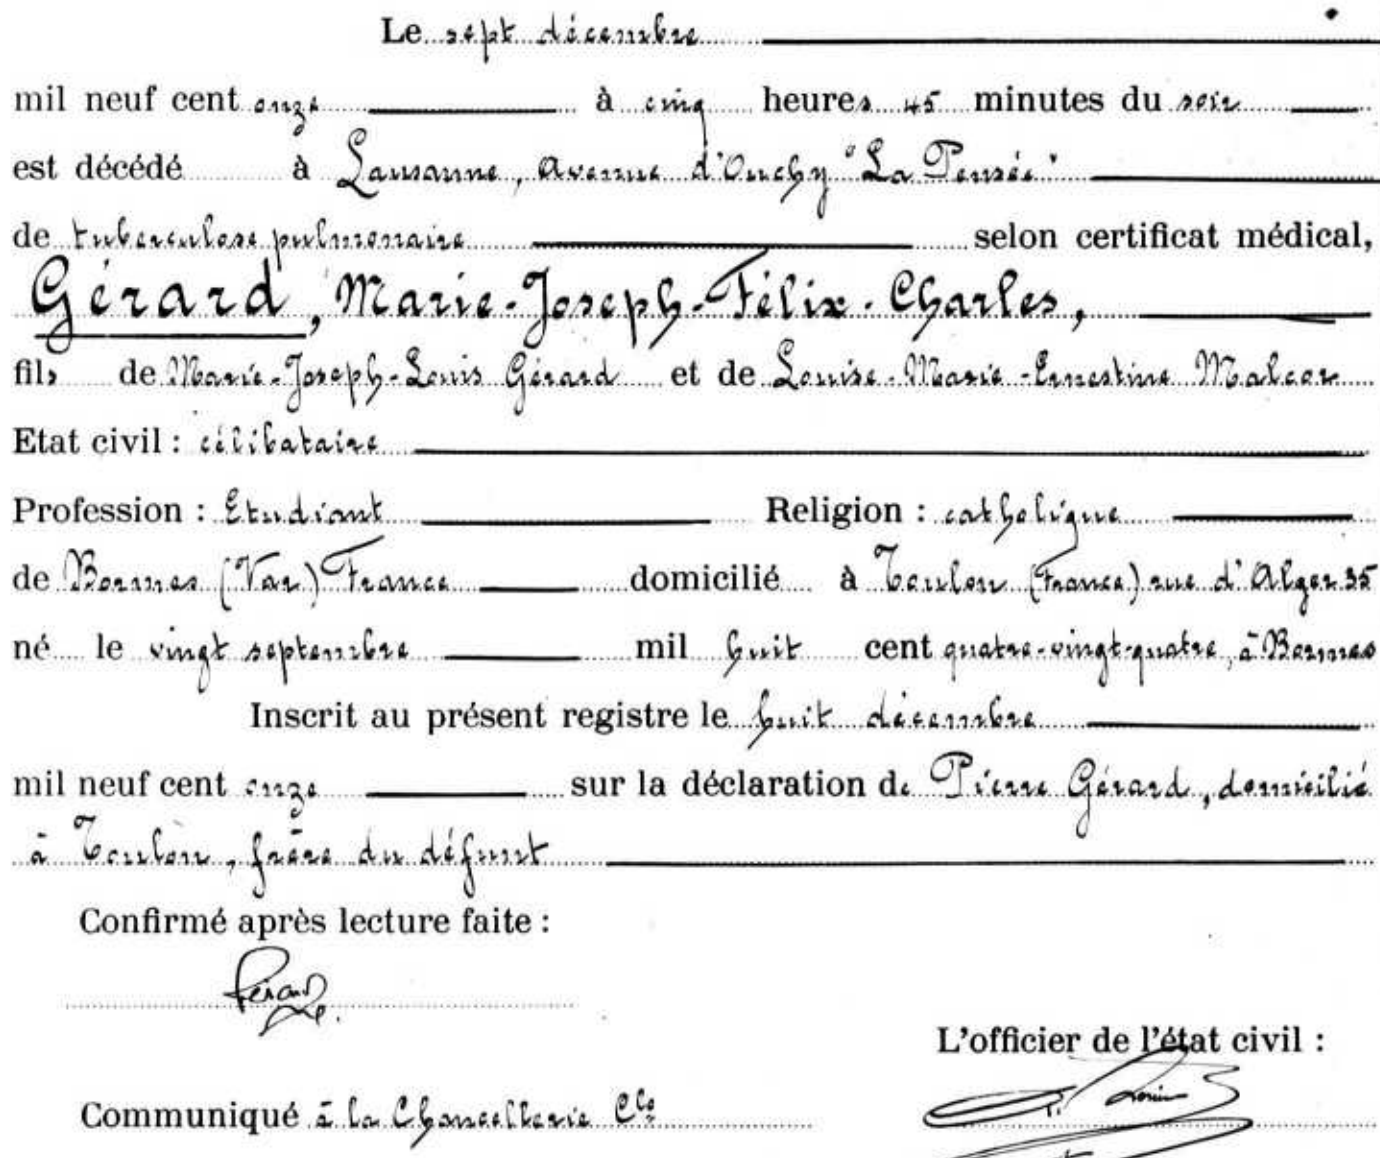 Le sept décembre
mil neuf cent onze à cinq heures 45 minutes du soir
est décédé à Lausanne, Avenue d'Ouchy "La Pensée"
de tuberculose pulmonaire selon certificat médical,
Gérard, Marie-Joseph-Félix-Charles,
fils de Marie-Joseph-Louis Gérard et de Louise-Marie-Ernestine Malcor
Etat civil : célibataire
Profession : Etudiant Religion : catholique
de Bormes (Var) France domicilié à Toulon (France) rue d'Alger 35
né le vingt septembre mil huit cent quatre-vingt-quatre, à Bormes
Inscrit au présent registre le huit décembre
mil neuf cent onze sur la déclaration de Pierre Gérard, domicilié
à Toulon, frère du défunt
Confirmé après lecture faite :
Gérard
L'officier de l'état civil :
Communiqué à la Chancellerie Cle